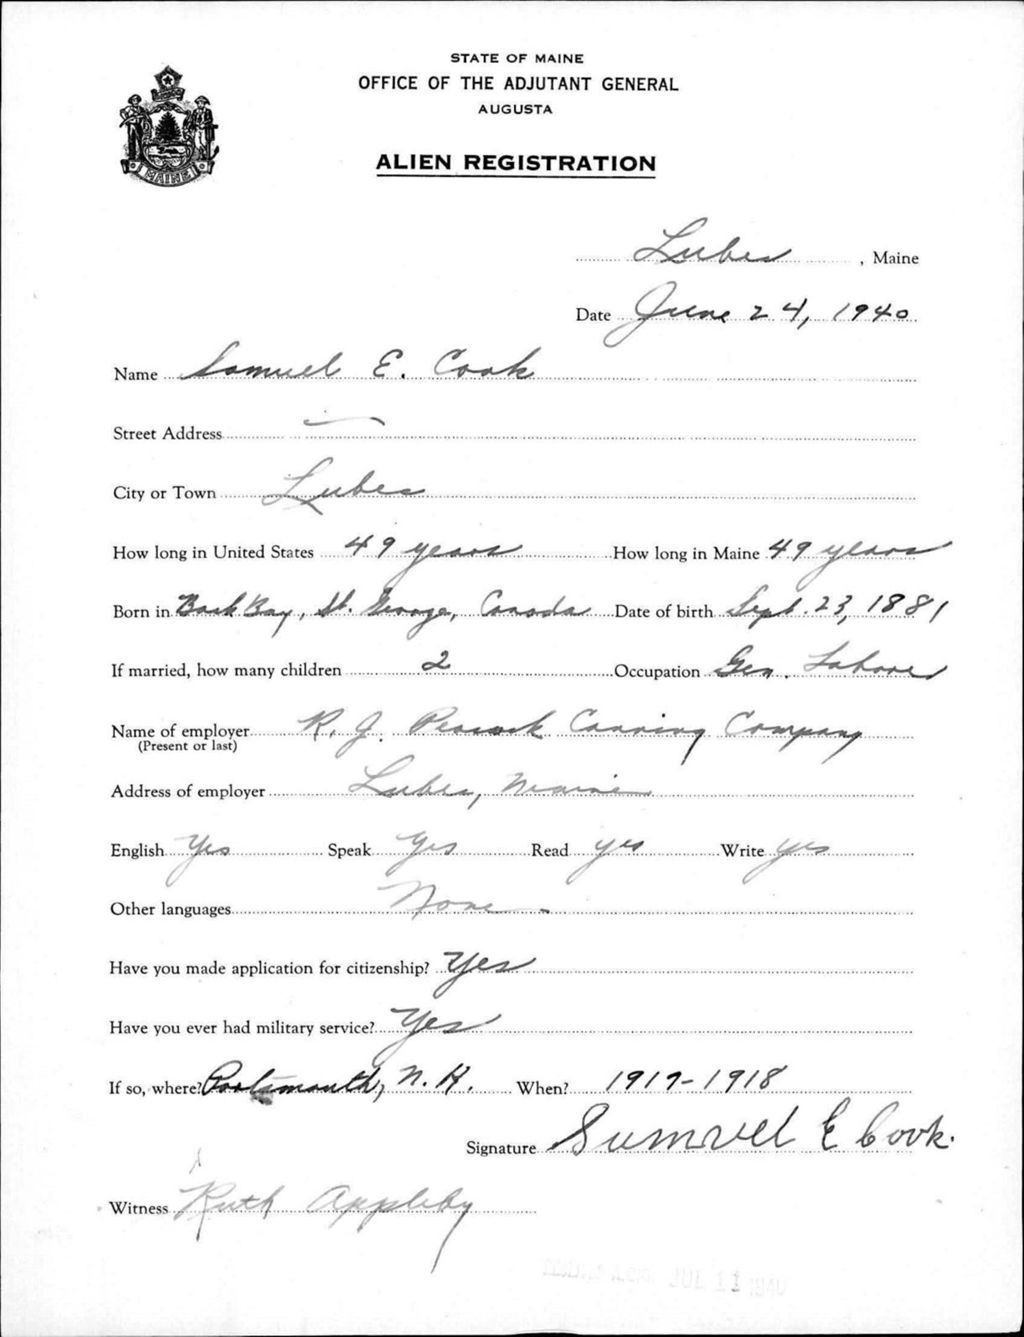 STATE OF MAINE
OFFICE OF THE ADJUTANT GENERAL
AUGUSTA
MAINE
ALIEN REGISTRATION
Lubec, Maine
Date June 24, 1940
Name Samuel E. Cook
Street Address —
City or Town Lubec
How long in United States 49 years How long in Maine 49 years
Born in Back Bay, St. George, Canada Date of birth Sept. 23, 1881
If married, how many children 2 Occupation Gen. Laborer
Name of employer R. J. Peacock Canning Company
(Present or last)
Address of employer Lubec, Maine
English Yes Speak Yes Read yes Write yes
Other languages None
Have you made application for citizenship? Yes
Have you ever had military service? Yes
If so, where? Portsmouth, N. H. When? 1917-1918
Signature Samuel E Cook.
Witness Ruth Appleby
JUL 11 1940